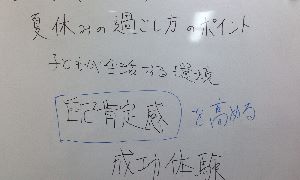 夏休みの過ごし方のポイント
子どもが生活する環境
自己肯定感を高める
成功体験